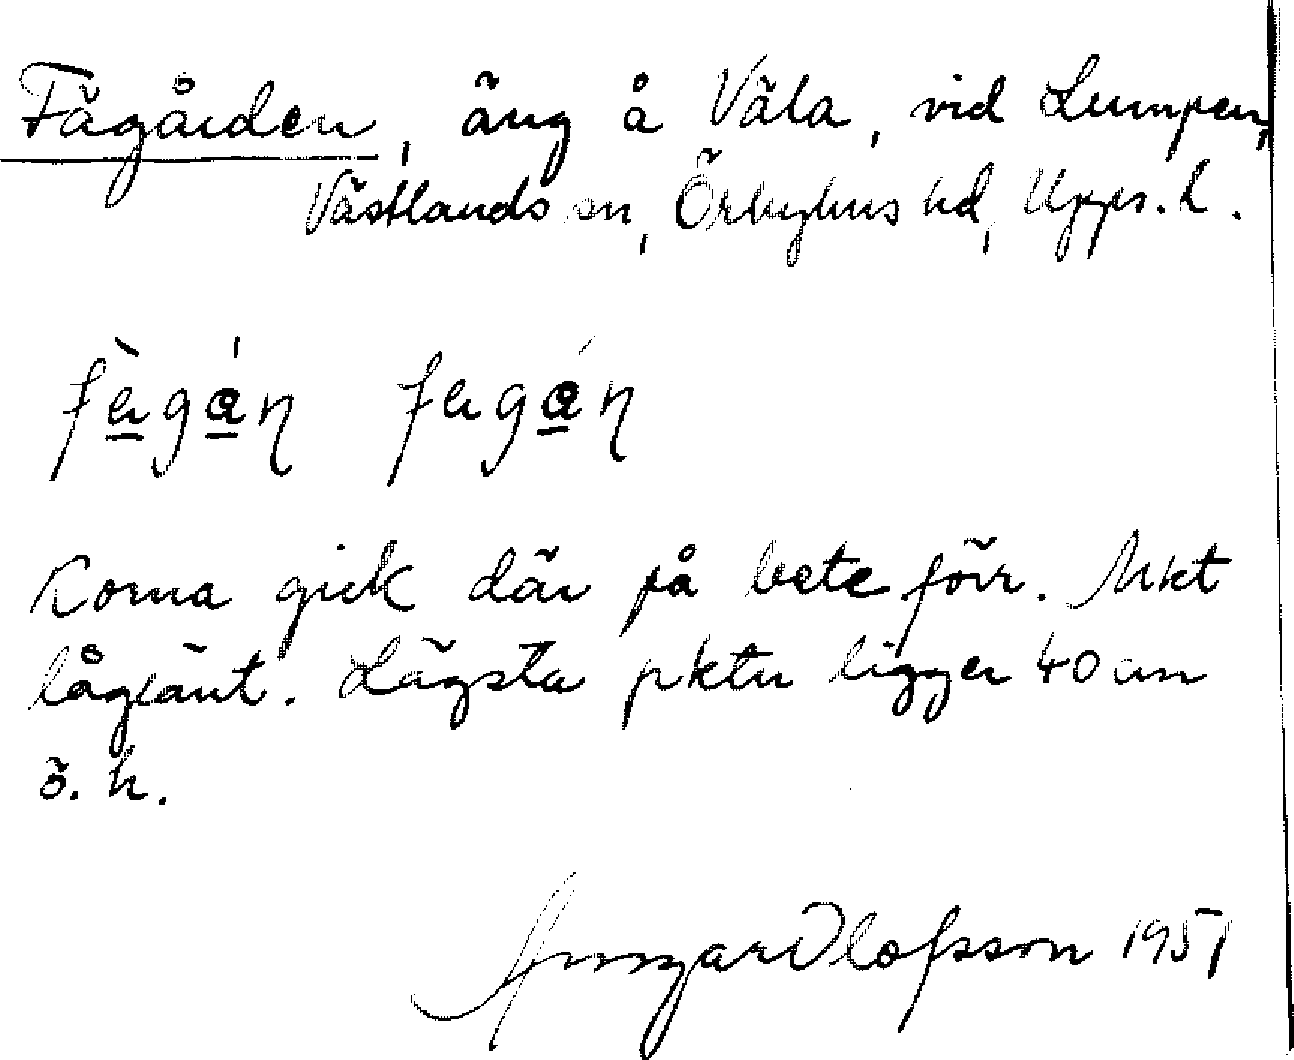 Fägården, äng å Väla, vid Lumpen,
Västlands sn, Örbyhus hd, Upps. l.
fä̀gǻn fägǻn
Korna gick där på bete förr. Mkt
låglänt. Lägsta pktn ligger 40 cm
ö. h.
Olofsson 1951